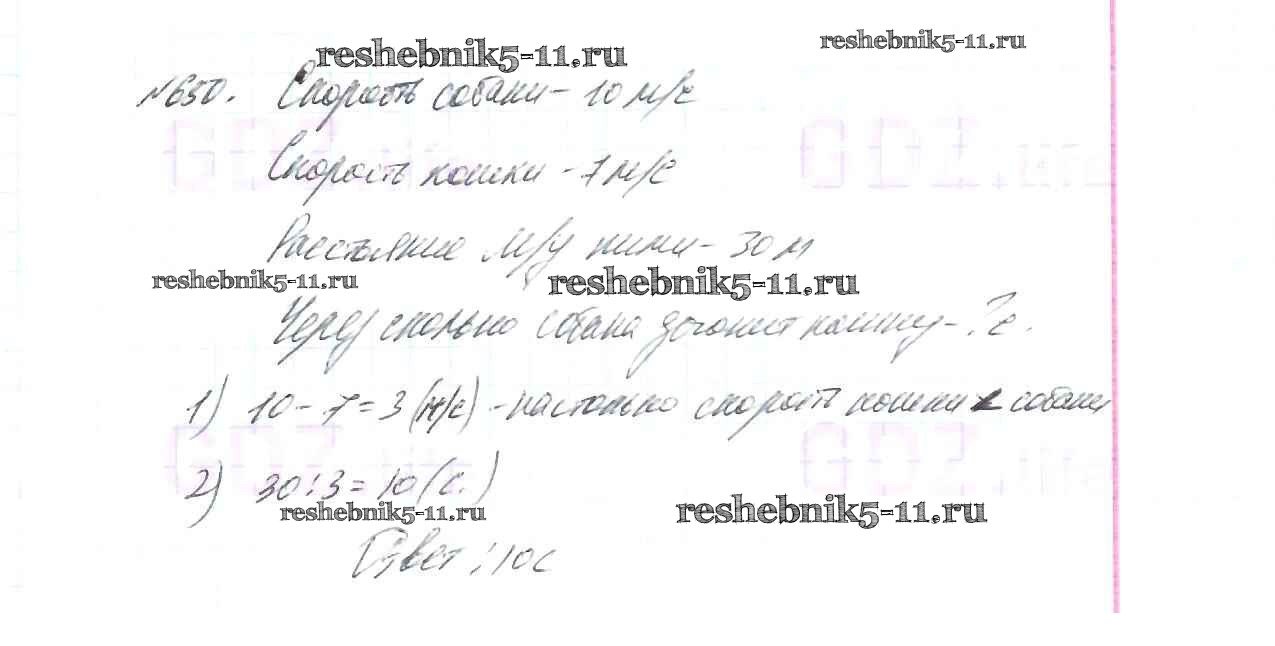 reshebnik5-11.ru
reshebnik5-11.ru
№650. Скорость собаки - 10 м/с
Скорость кошки - 7 м/с
Расстояние м/у ними - 30 м
reshebnik5-11.ru
reshebnik5-11.ru
Через сколько собака догонит кошку - ? с.
1) 10 - 7 = 3 (м/с) - настолько скорость кошки < собаки
2) 30 : 3 = 10 (с.)
reshebnik5-11.ru
reshebnik5-11.ru
Ответ: 10 с